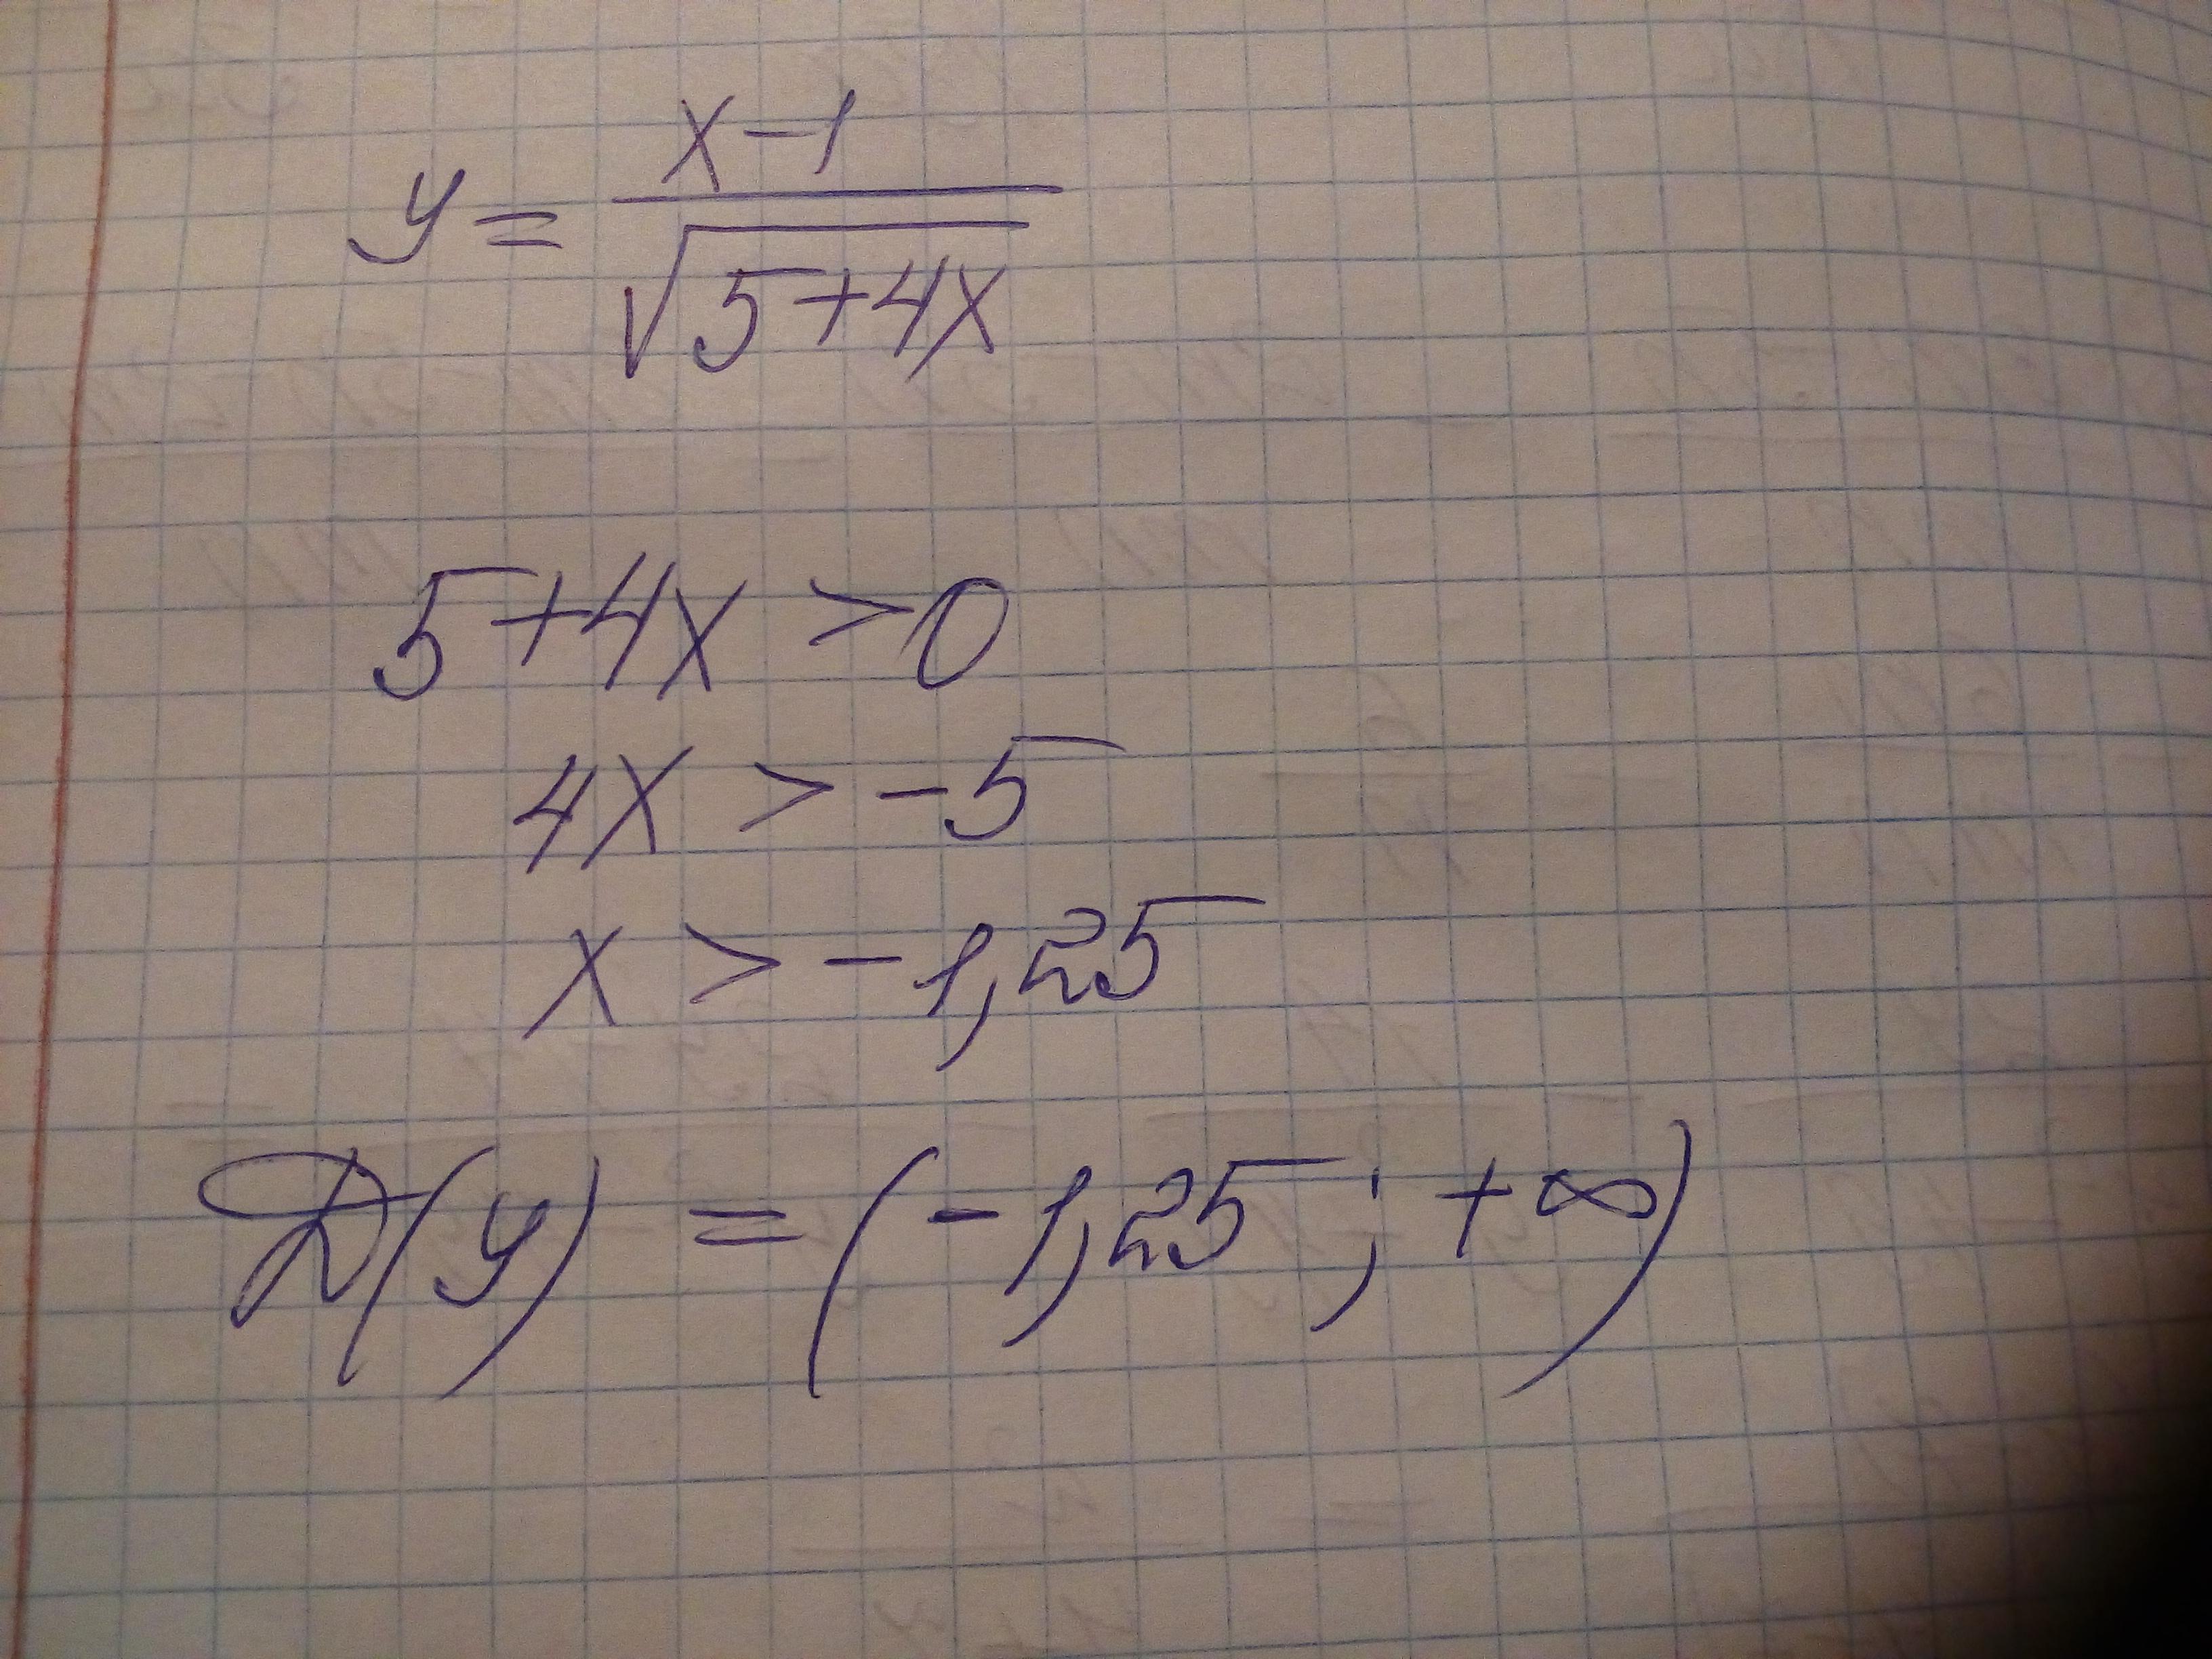 y = x-1 / √5+4x
5+4x > 0
4x > -5
x > -1,25
D(y) = (-1,25 ; +∞)